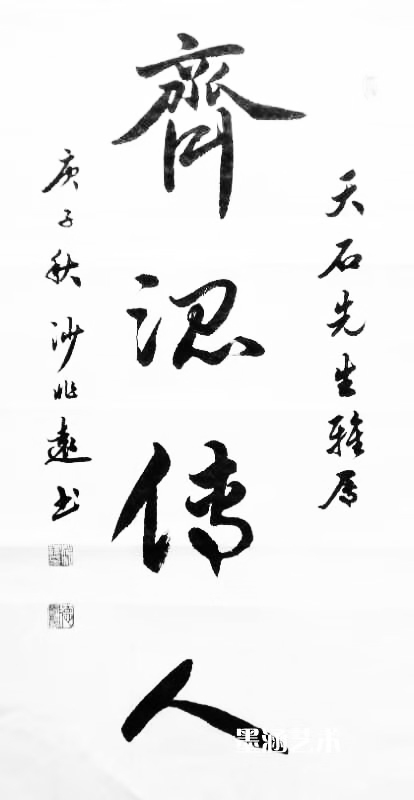 天石先生雅属
齊認傳人
庚子秋 沙遠书
墨涵艺术